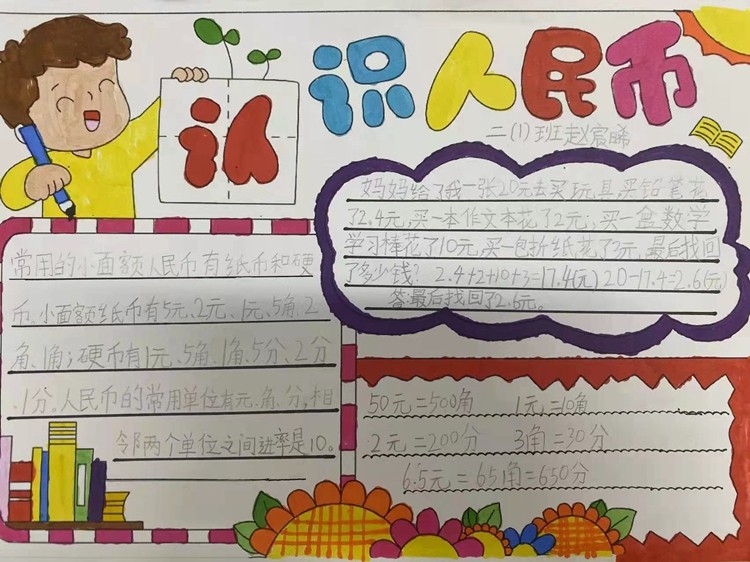 认识人民币
二(1)班赵宸晞
妈妈给了我一张20元去买玩具,买铅笔花
了2.4元,买一本作文本花了2元;买一盒数学
学习棒花了10元,买一包折纸花了3元,最后找回
了多少钱? 2.4+2+10+3=17.4(元) 20-17.4=2.6(元)
答:最后找回了2.6元。
常用的小面额人民币有纸币和硬
币、小面额纸币有5元、2元、1元、5角、2
角、1角;硬币有1元、5角、1角、5分、2分
、1分。人民币的常用单位有元、角、分,相
邻两个单位之间进率是10。
50元=500角 1元=10角
2元=200分 3角=30分
6.5元=65角=650分